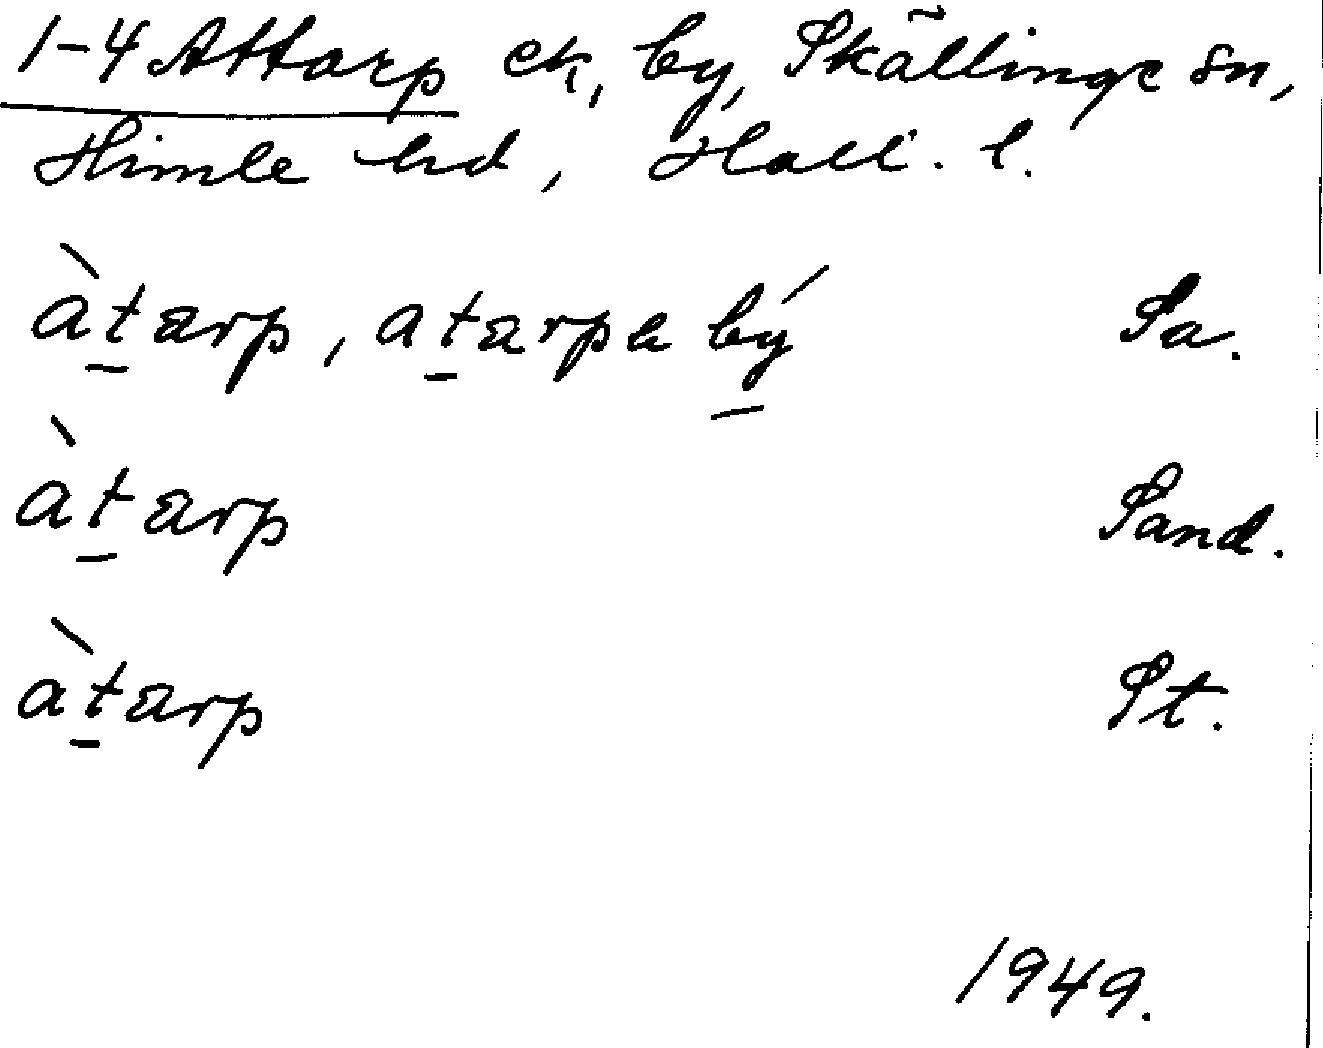 1-4 Attarp ek, by, Skällinge sn,
Himle hd, Hall. l.
àt̠arp, at̠arpa bý̠ Sa.
àt̠arp Sand.
àt̠arp St.
1949.